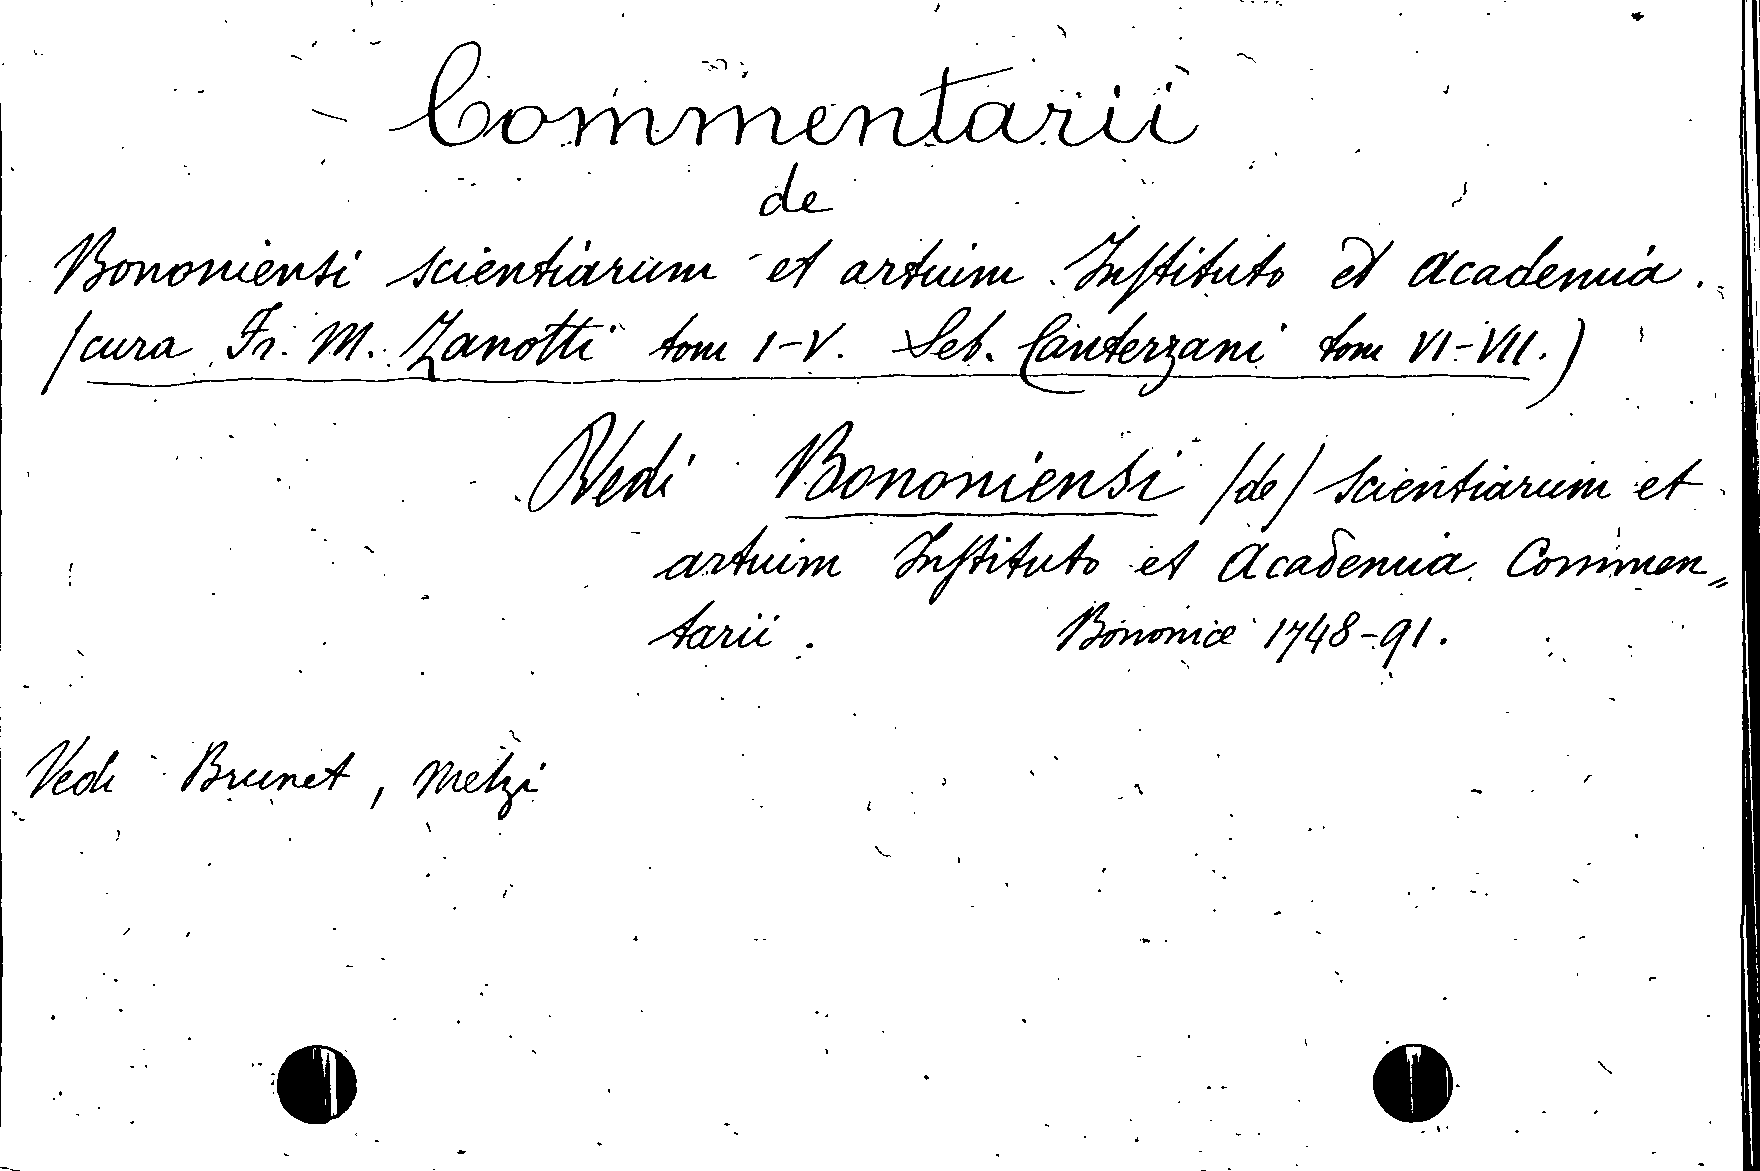 Commentarii
de
Bononiensi scientiarum et artium Instituto et Academia.
(cura Fr. M. Zanotti tom I-V. Seb. Canterzani tom VI-VII.)
Vedi Bononiensi (de) scientiarum et
artium Instituto et Academia Commen„
tarii. Bononiæ 1748-91.
Vedi Brunet, Melzi